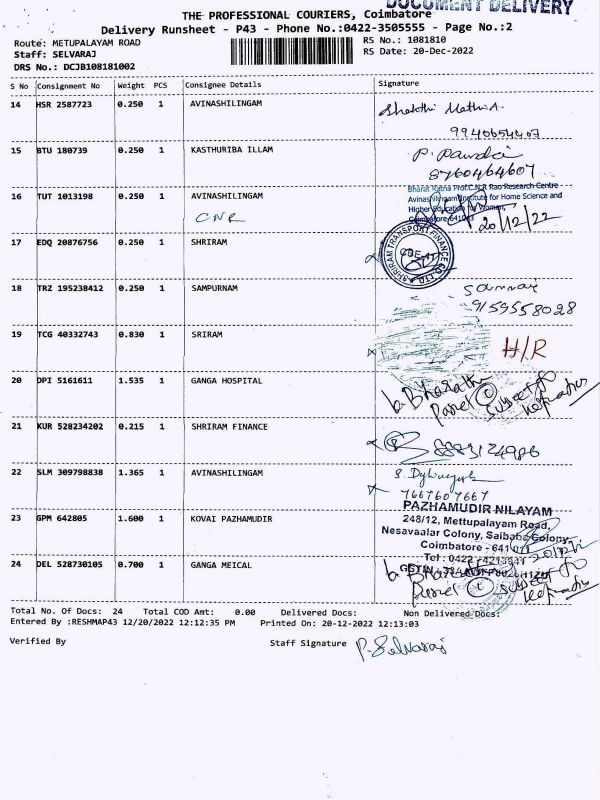 DOCUMENT DELIVERY
THE PROFESSIONAL COURIERS, Coimbatore
Delivery Runsheet - P43 - Phone No.:0422-3505555 - Page No.:2
Route: METUPALAYAM ROAD
RS No.: 1081810
Staff: SELVARAJ
RS Date: 20-Dec-2022
DRS No.: DCJB108181002
S No Consignment No Weight PCS Consignee Details Signature
14 HSR 2587723 0.250 1 AVINASHILINGAM
Shakthi Mathi A.
9940654407
15 BTU 180739 0.250 1 KASTHURIBA ILLAM
8760464607
Bharat Ratna Prof.C.N.R Rao Research Centre
16 TUT 1013198 0.250 1 AVINASHILINGAM
Avinashilingam Institute for Home Science and
Higher Education for Women,
CNR
Coimbatore-641043
20/12/22
17 EDQ 20876756 0.250 1 SHRIRAM
SHRIRAM TRANSPORT FINANCE CO. LTD.
CBE-41
18 TRZ 195238412 0.250 1 SAMPURNAM
9159558028
19 TCG 40332743 0.830 1 SRIRAM
H/R
20 DPI 5161611 1.535 1 GANGA HOSPITAL
b. Bharath
Parcel
Subject to
21 KUR 528234202 0.215 1 SHRIRAM FINANCE
22 SLM 309798838 1.365 1 AVINASHILINGAM
7667607667
PAZHAMUDIR NILAYAM
23 GPM 642805 1.600 1 KOVAI PAZHAMUDIR
248/12, Mettupalayam Road,
Nesavaalar Colony, Saibaba Colony,
Coimbatore - 641 011
24 DEL 528730105 0.700 1 GANGA MEICAL
Tel : 0422
GSTIN
b. Bharath
Parcel
Subject to
Total No. Of Docs: 24 Total COD Amt: 0.00 Delivered Docs: Non Delivered Docs:
Entered By :RESHMAP43 12/20/2022 12:12:35 PM Printed On: 20-12-2022 12:13:03
Verified By Staff Signature P. Selvaraj